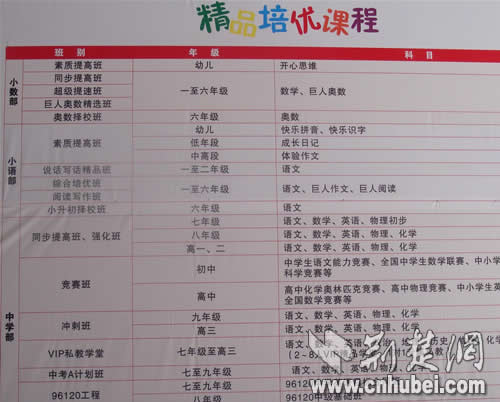 精品培优课程
班 别 年 级 科 目
小数部
素质提高班 幼儿 开心思维
同步提高班
超级提速班 一至六年级 数学、巨人奥数
巨人奥数精选班
奥数择校班 六年级 奥数
小语部
幼儿 快乐拼音、快乐识字
素质提高班 低年段 成长日记
中高段 体验作文
说话写话精品班 一至二年级 语文
综合培优班
一至六年级 语文、巨人作文、巨人阅读
阅读写作班
小升初择校班 六年级 语文
中学部
七年级 语文、数学、英语、物理初步
同步提高班、强化班 八年级 语文、数学、英语、物理、化学
高一、二 语文、数学、英语、物理、化学
竞赛班 初中 中学生语文能力竞赛、全国中学生数学联赛、中小学
科学竞赛等
高中 高中化学奥林匹克竞赛、高中物理竞赛、中小学生英
全国数学竞赛等
冲刺班 九年级 语文、数学、英语、物理、化学
高三 语文、数学、英语、物理、化学
VIP私教学堂 七年级至高三 语文、数学、英语
(2-8人VIP精品
中考A计划班 七至九年级 语文、数学、英语、物理、化学
96120工程 七至九年级 96120
八年级 96120中级基础班
荆楚网
www.cnhubei.com